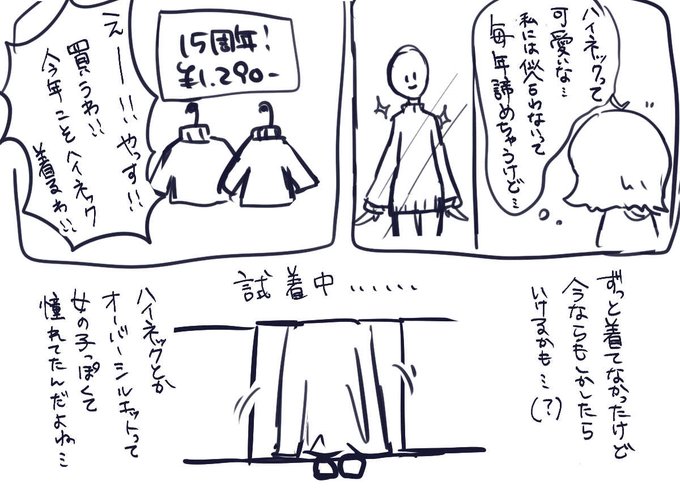 ハイネックって
可愛いな…
私には似合わないって
毎年諦めちゃうけど…
15周年!
¥1,290-
えー!!やっす!!
買うわ!!
今年こそハイネック
着るわ!!
ずっと着てなかったけど
今ならもしかしたら
いけるかも…(?)
試着中……
ハイネックとか
オーバーシルエットって
女の子っぽくて
憧れてたんだよね…